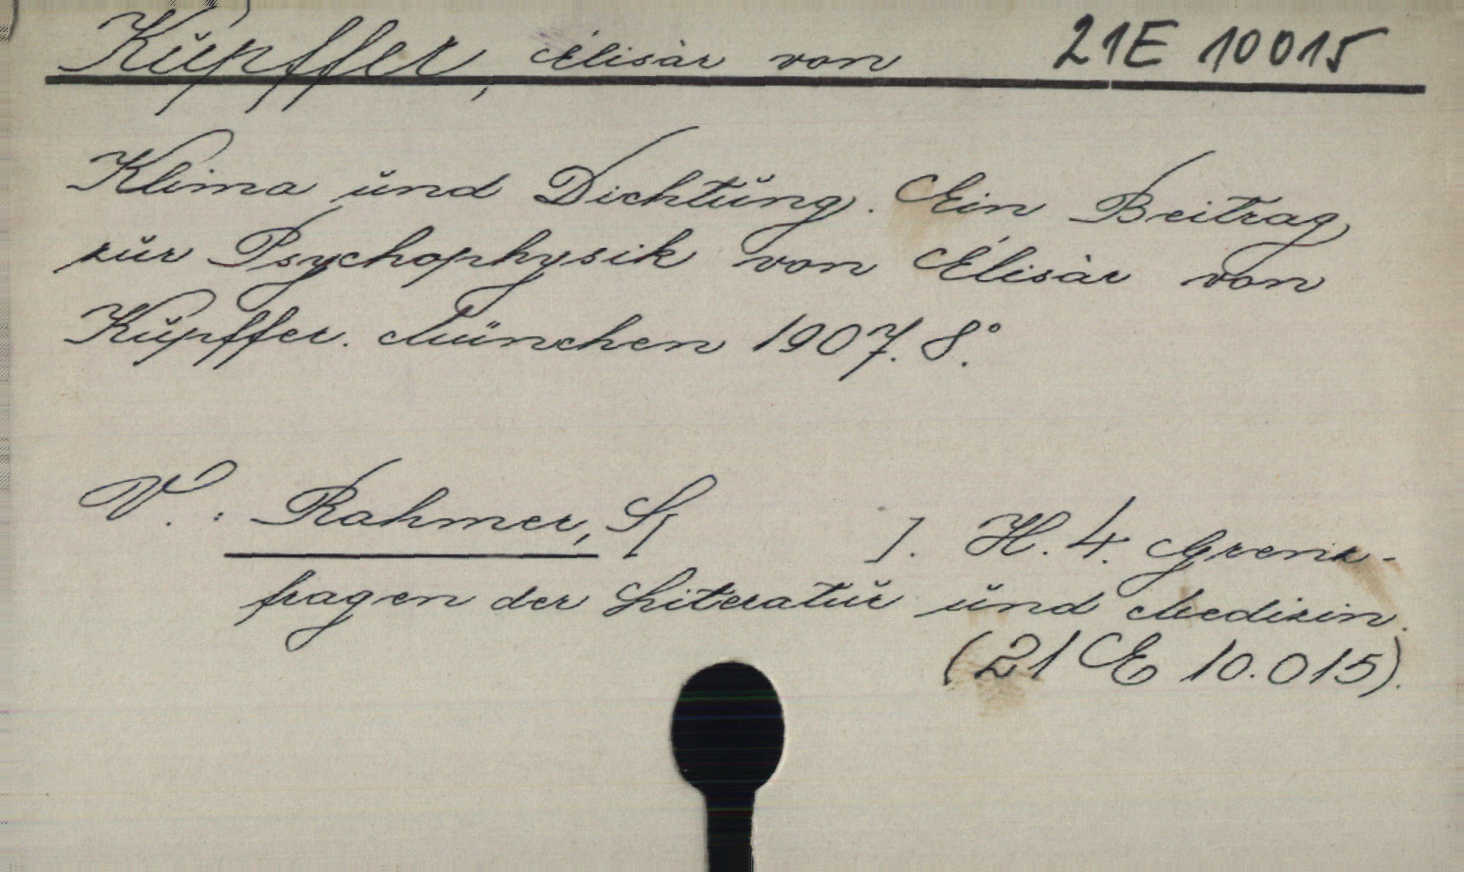 Kupffer, Élisàr von 21E 10015
Klima und Dichtung. Ein Beitrag
zur Psychophysik von Élisàr von
Kupffer. München 1907. 8°.
V.: Rahmer, S[ ]. H. 4. Grenz-
fragen der Literatur und Medizin.
(21 E 10.015).